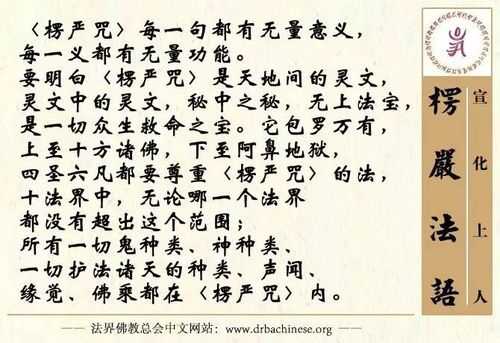 〈楞严咒〉每一句都有无量意义，
每一义都有无量功能。
要明白〈楞严咒〉是天地间的灵文，
灵文中的灵文，秘中之秘，无上法宝，
是一切众生救命之宝。它包罗万有，
上至十方诸佛，下至阿鼻地狱，
四圣六凡都要尊重〈楞严咒〉的法，
十法界中，无论哪一个法界
都没有超出这个范围；
所有一切鬼种类、神种类、
一切护法诸天的种类、声闻、
缘觉、佛乘都在〈楞严咒〉内。
宣化上人
楞嚴法語
—— 法界佛教总会中文网站：www.drbachinese.org ——